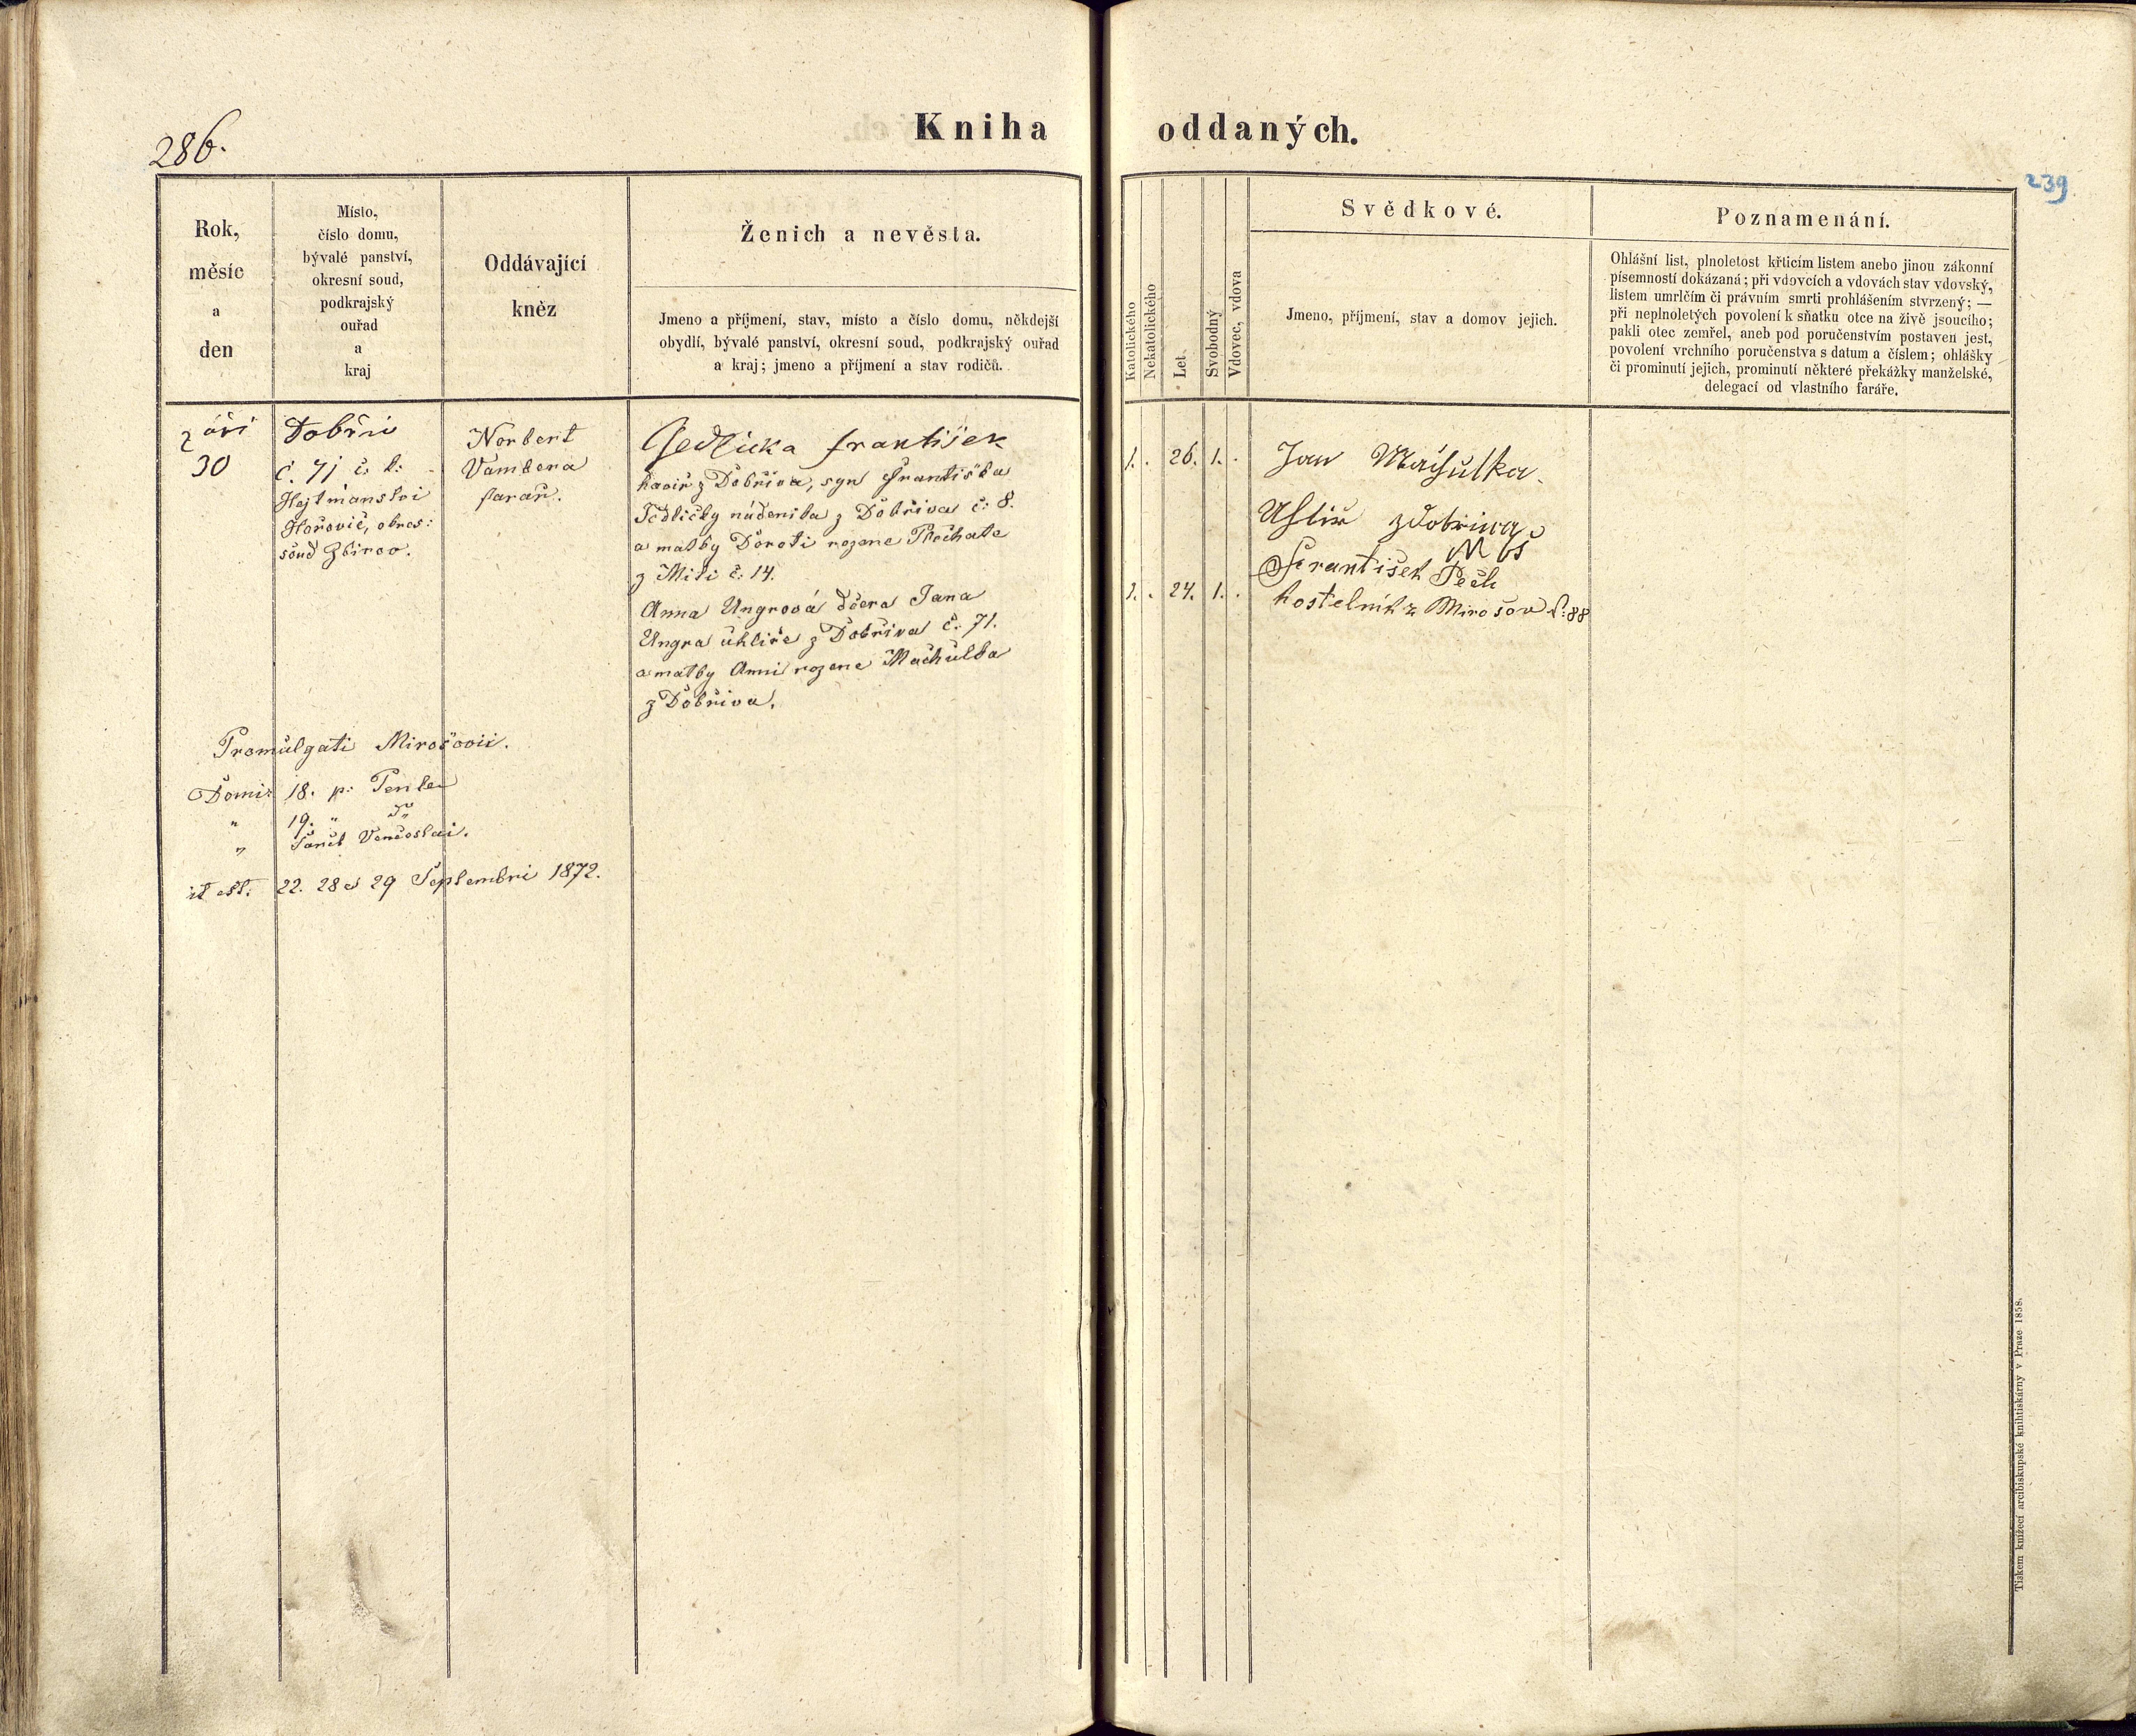 286.
Kniha oddaných.
239
Rok,
měsíc
a
den
Místo,
číslo domu,
bývalé panství,
okresní soud,
podkrajský
ouřad
a
kraj
Oddávající
kněz
Ženich a nevěsta.
Jmeno a příjmení, stav, místo a číslo domu, někdejší
obydlí, bývalé panství, okresní soud, podkrajský ouřad
a kraj; jmeno a příjmení a stav rodičů.
Katolického
Nekatolického
Let
Svobodný
Vdovec, vdova
Svědkové.
Jmeno, příjmení, stav a domov jejich.
Poznamenání.
Ohlášní list, plnoletost křticím listem anebo jinou zákonní
písemností dokázaná; při vdovcích a vdovách stav vdovský,
listem umrlčím či právním smrti prohlášením stvrzený; —
při neplnoletých povolení k sňatku otce na živě jsoucího;
pakli otec zemřel, aneb pod poručenstvím postaven jest,
povolení vrchního poručenstva s datum a číslem; ohlášky
či prominutí jejich, prominutí některé překážky manželské,
delegací od vlastního faráře.
září
30
Dobřiv
č. 71 č. k:
Hejtmanstvi
Hořovic, okres:
soud Zbirov.
Norbert
Vambera
farař.
Jedlicka František
havíř z Dobřiva, syn Františka
Jedličky nádenika z Dobřiva č: 8.
a matky Doroti rozene Plechate
z Miti č: 14.
Anna Ungrová dcera Jana
Ungra uhliře z Dobřiva č: 71.
a matky Anni rozene Machulka
z Dobřiva.
1. . 26. 1. .
1. . 24. 1. .
Jan Machulka
Uhliř z dobriwa
František Pech
kostelnik z Mirošov č: 88
Promulgati Mirošovii.
Domi: 18. p: Pente
" 19. " "
" Sancti Venceslai.
id est. 22. 28 et 29 Septembri 1872.
Tiskem knížecí arcibiskupské knihtiskárny v Praze 1858.